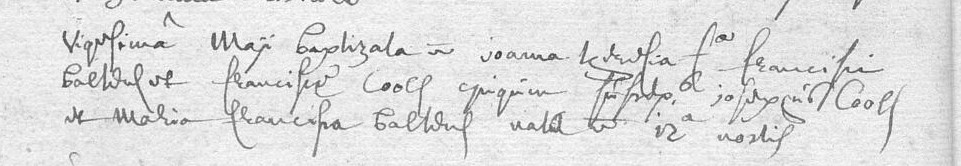 Vigesima Maji baptizata ē joanna theresia fa francisci
baltens et francisce Cools conjugum susceper. josephus Cools
et Maria francisca baltens nata ē 12a noctis